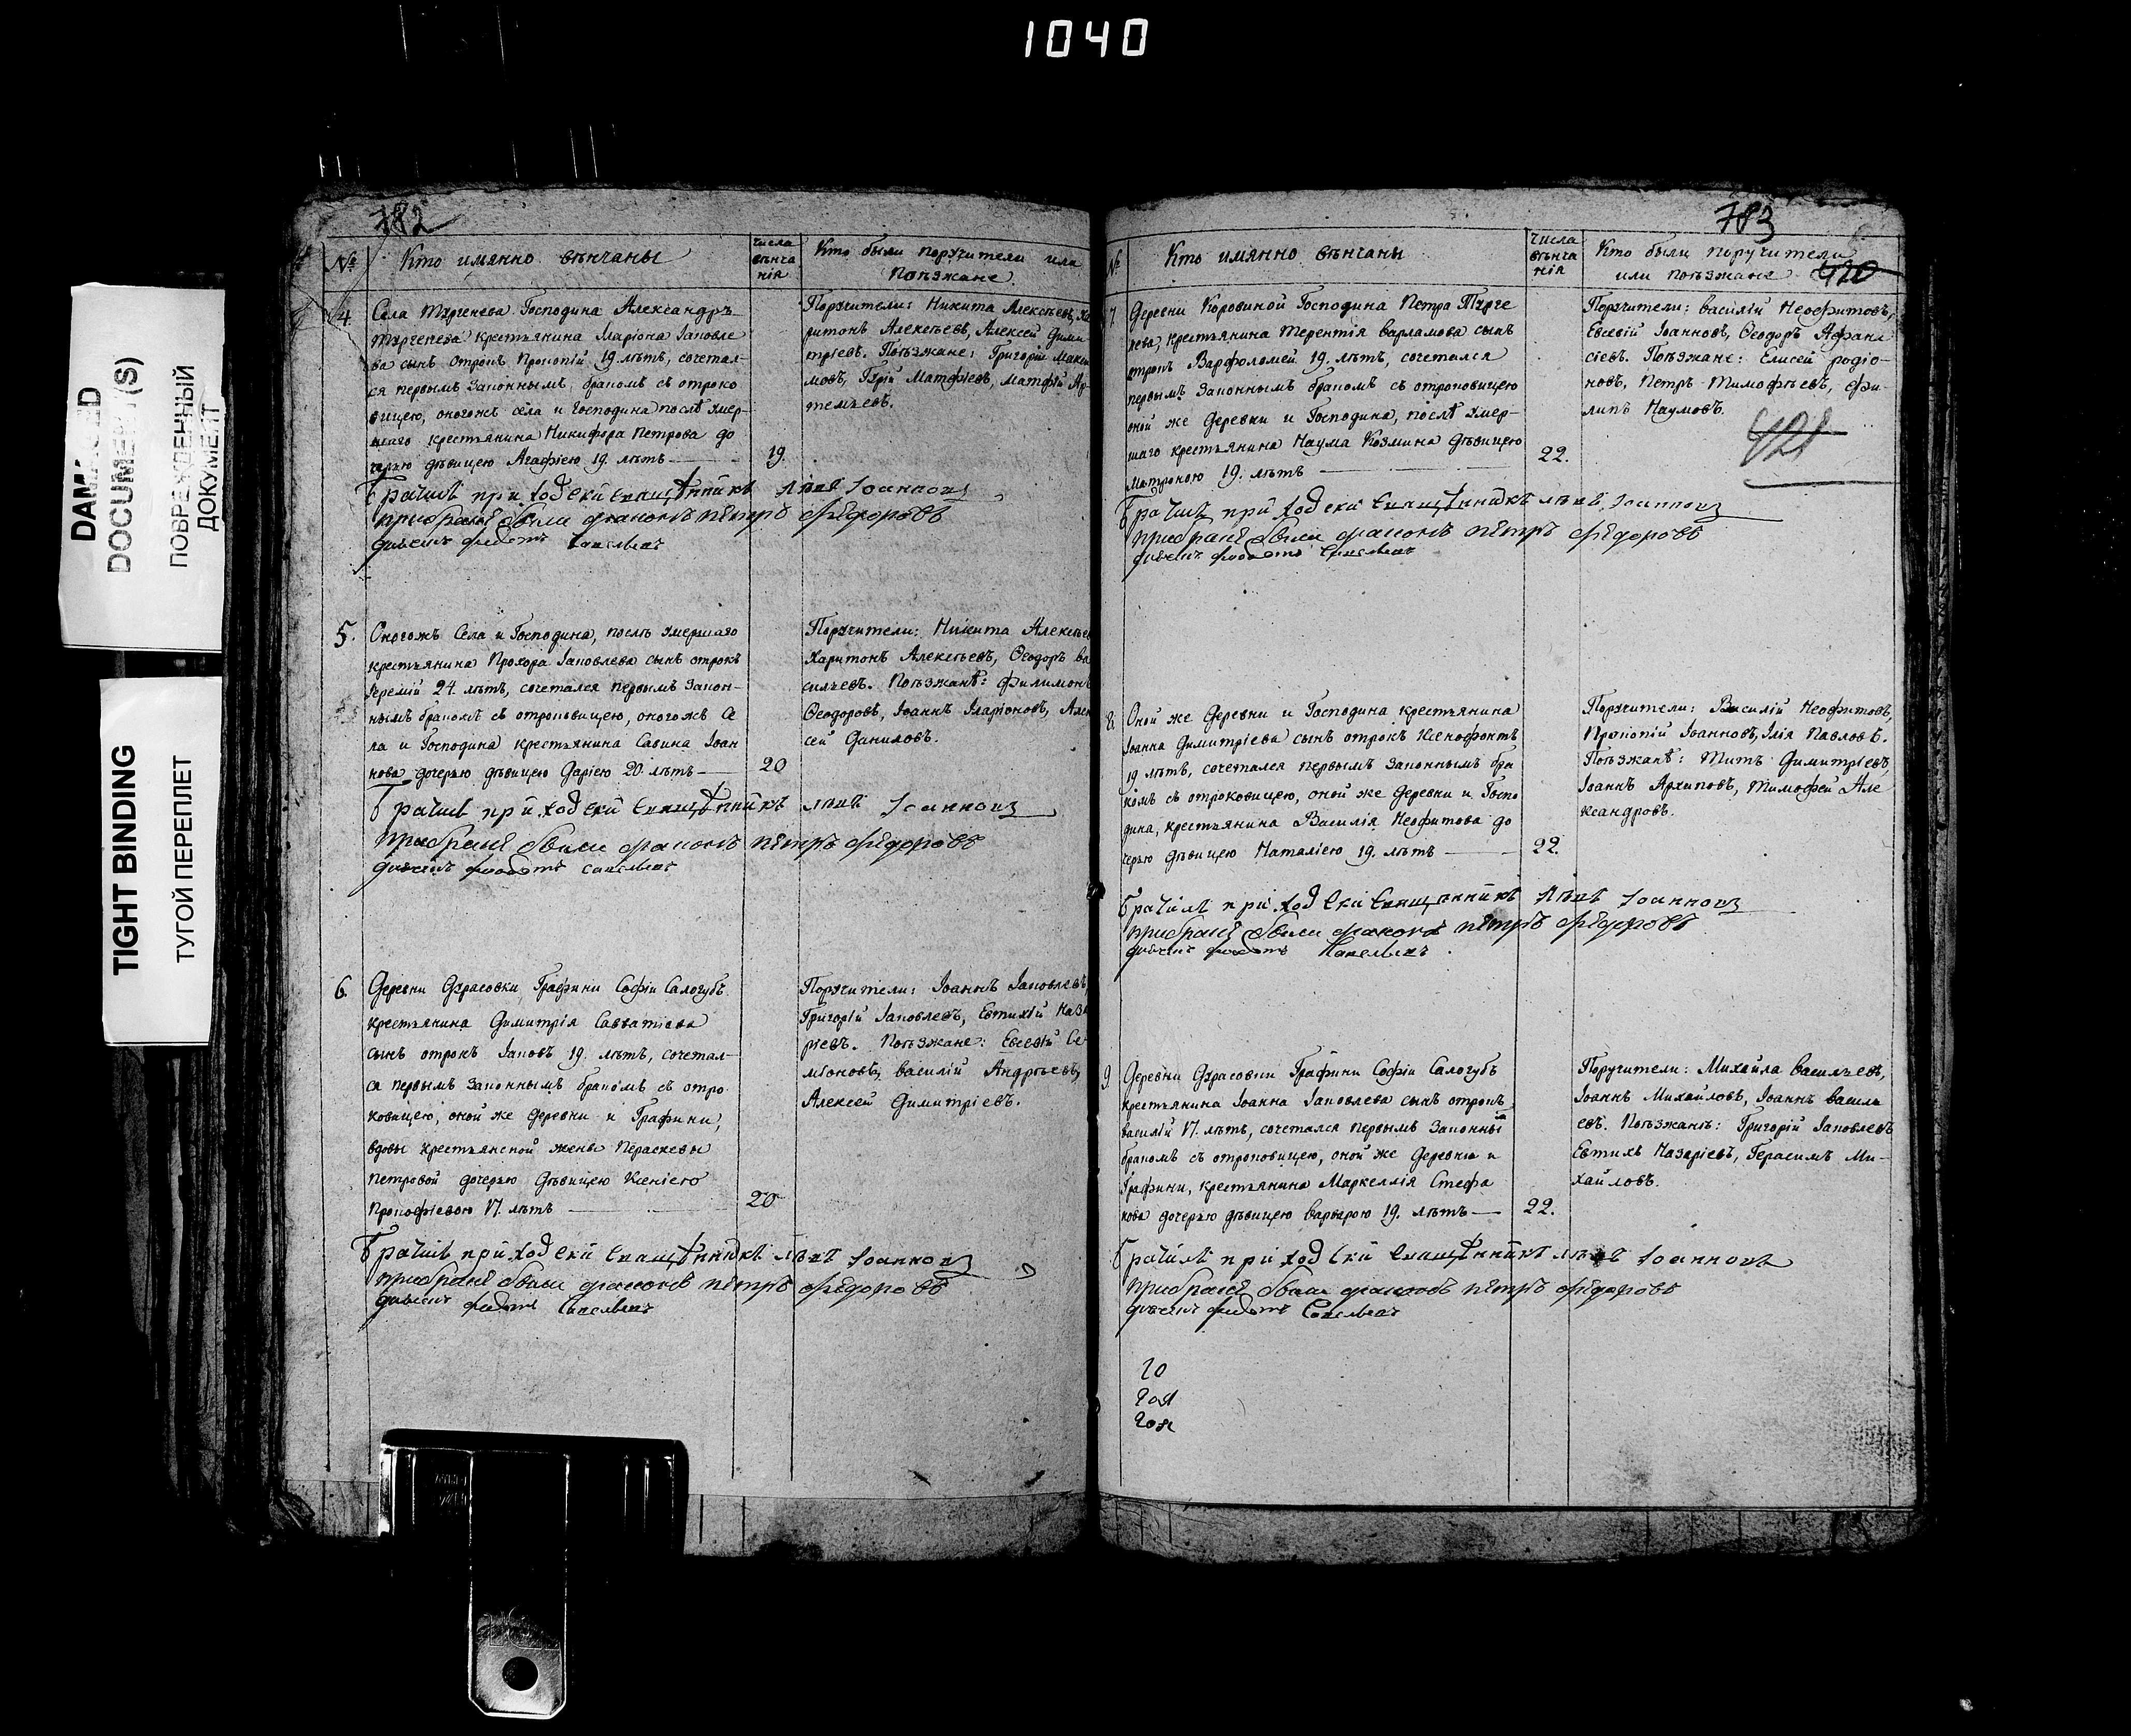 1040
DAMAGED
DOCUMENT(S)
ПОВРЕЖДЕННЫЙ
ДОКУМЕНТ
TIGHT BINDING
ТУГОЙ ПЕРЕПЛЕТ
782
№ Кто имянно вѣнчаны
числа вѣнча нія
Кто были поручители или
поѣзжане.
4. Села Тургенева Господина Александръ
Тургенева крестьянина Иларіона Іаковле
ва сынъ отрокъ Прокопій 19 лѣтъ, сочетал-
ся первымъ законнымъ бракомъ съ отроко
вицею, оногожъ села и господина послѣ умер-
шаго крестьянина Никифора Петрова до
черью дѣвицею Агафіею 19. лѣтъ — 19.
Поручители: Никита Алексѣевъ, Ха
ритонъ Алексѣевъ, Алексей Дими
тріевъ. Поѣзжане: Григорій Макси
мовъ, Гурій Матфіевъ, Матфій Ар
темьевъ.
приходскй Іоанновъ
петръ федоровъ
5. Оногожъ Села и Господина, послѣ умершаго
крестьянина Прохора Іаковлева сынъ отрокъ
Іеремій 24. лѣтъ, сочетался первымъ закон-
нымъ бракомъ съ отроковицею, оногожъ Се
ла и Господина крестьянина Савина Іоан
нова дочерью дѣвицею Даріею 20. лѣтъ — 20
Поручители: Никита Алексѣев
Харитонъ Алексѣевъ, Ѳеодоръ ва
сильевъ. Поѣзжанѣ: Филимонъ
Ѳеодоровъ, Іоаннъ Іларіоновъ, Алек
сей Даниловъ.
приходскй Іоанновъ
петръ федоровъ
6. Деревни Дурасовки Графини Софіи Салогубъ
крестьянина Димитрія Савватіева
сынъ отрокъ Іаковъ 19. лѣтъ, сочетал-
ся первымъ законнымъ бракомъ съ отро
ковицею, оной же деревни и Графини,
вдовы крестьянской жены Параскевы
Петровой дочерью дѣвицею Ксеніею
Прокофіевою 17. лѣтъ — 20
Поручители: Іоаннъ Іаковлевъ
Григорій Іаковлевъ, Евтихій Наза
ріевъ. Поѣзжане: Евсевій Се-
меоновъ, василій Андрѣевъ,
Алексей Димитріевъ.
приходскй Іоанновъ
петръ федоровъ
783
№ Кто имянно вѣнчаны
числа вѣнча нія
Кто были поручители
или поѣзжане 420
7. Деревни Коровиной Господина Петра Турге
нева, крестьянина Терентія варламова сынъ
отрокъ Варфоломей 19. лѣтъ, сочетался
первымъ законнымъ бракомъ съ отроковицею
оной же деревни и Господина, послѣ умер-
шаго крестьянина Наума Козмина дѣвицею
Матроною 19. лѣтъ — 22.
Поручители: василій Неофитовъ,
Евсевій Іоанновъ, Ѳеодоръ Афана
сіевъ. Поѣзжане: Елисей родіо-
новъ, Петръ Тимофѣевъ, Фи-
липъ Наумовъ.
421
приходскй Іоанновъ
петръ федоровъ
8. Оной же деревни и Господина крестьянина
Іоанна Димитріева сынъ отрокъ Ксенофонтъ
19 лѣтъ, сочетался первымъ законнымъ бра
комъ съ отроковицею, оной же деревни и Госпо
дина, крестьянина Василія Неофитова до
черью дѣвицею Наталіею 19. лѣтъ — 22.
Поручители: Василій Неофитовъ,
Прокопій Іоанновъ, Ілія Павловъ.
Поѣзжанѣ: Титъ Димитріевъ,
Іоаннъ Архиповъ, Тимофей Але
ксандровъ.
приходскй Іоанновъ
петръ федоровъ
9. Деревни Дурасовки Графини Софіи Салогубъ
крестьянина Іоанна Іаковлева сынъ отрокъ
василій 17. лѣтъ, сочетался первымъ законны м
бракомъ съ отроковицею, оной же деревни и
Графини, крестьянина Маркеллія Стефа
нова дочерью дѣвицею варварою 19. лѣтъ — 22.
Поручители: Михайла васильевъ,
Іоаннъ Михайловъ, Іоаннъ василь
евъ. Поѣзжанѣ: Григорій Іаковлевъ
Евтихъ Назаріевъ, Герасимъ Ми-
хайловъ.
приходскй Іоанновъ
петръ федоровъ
20